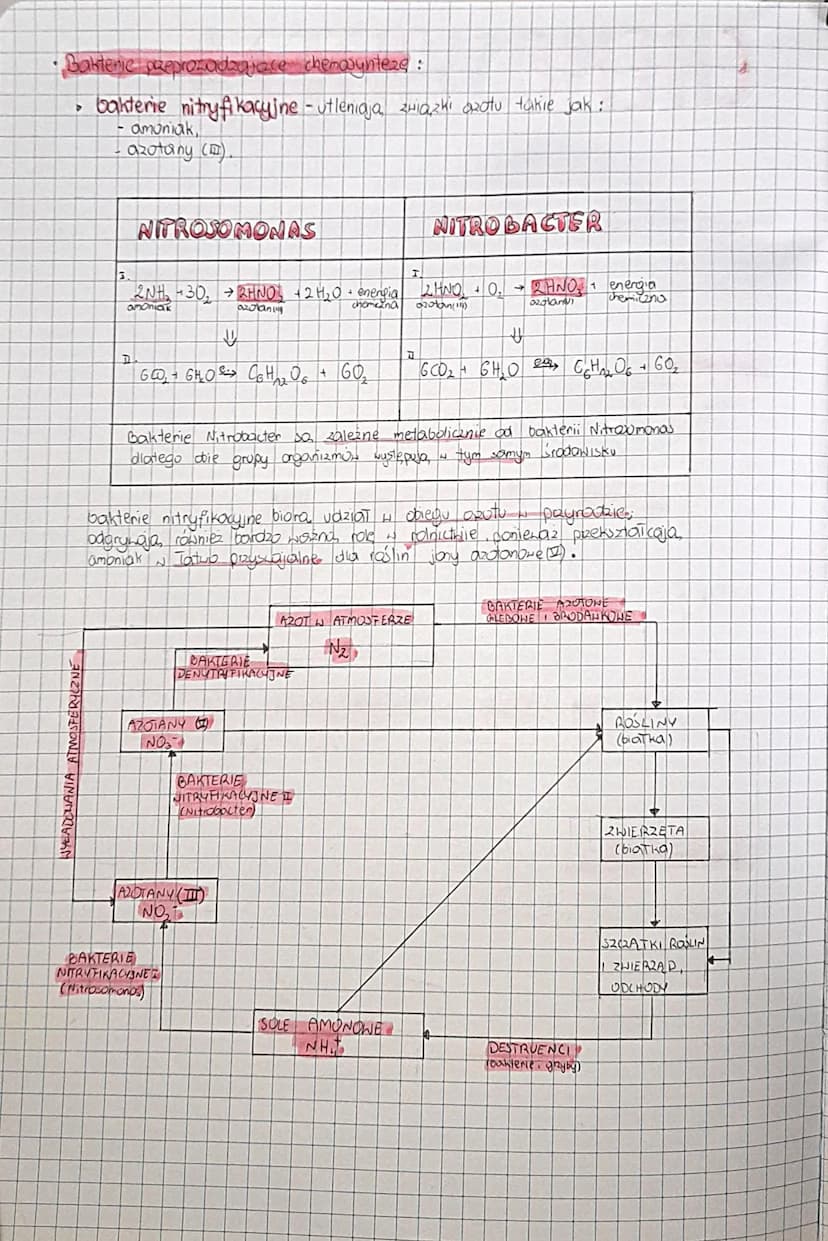 • Bakterie przeprowadzające chemosyntezę :
• bakterie nitryfikacyjne - utleniają związki azotu takie jak :
- amoniak,
- azotany (III).
NITROSOMONAS
I.
2NH₃ + 3O₂ → 2HNO₂ + 2H₂O + energia
amoniak azotan(III) chemiczna
⇓
II.
6CO₂ + 6H₂O → C₆H₁₂O₆ + 6O₂
NITROBACTER
I.
2HNO₂ + O₂ → 2HNO₃ + energia
azotan(III) azotan(V) chemiczna
⇓
II
6CO₂ + 6H₂O → C₆H₁₂O₆ + 6O₂
Bakterie Nitrobacter są zależne metabolicznie od bakterii Nitrosomonas
dlatego obie grupy organizmów występują w tym samym środowisku
bakterie nitryfikacyjne biorą udział w obiegu azotu w przyrodzie;
odgrywają również bardzo ważną rolę w rolnictwie, ponieważ przekształcają
amoniak w łatwo przyswajalne dla roślin jony azotanowe (V).
AZOT W ATMOSFERZE
N₂
BAKTERIE AZOTOWE
GLEBOWE I BRODAWKOWE
BAKTERIE
DENITRYFIKACYJNE
WYŁADOWANIA ATMOSFERYCZNE
AZOTANY (V)
NO₃⁻
ROŚLINY
(białka)
BAKTERIE
NITRYFIKACYJNE II
(Nitrobacter)
ZWIERZĘTA
(białka)
AZOTANY (III)
NO₂⁻
SZCZĄTKI ROŚLIN
I ZWIERZĄT,
ODCHODY
BAKTERIE
NITRYFIKACYJNE I
(Nitrosomonas)
SOLE AMONOWE
NH₄⁺
DESTRUENCI
(bakterie i grzyby)